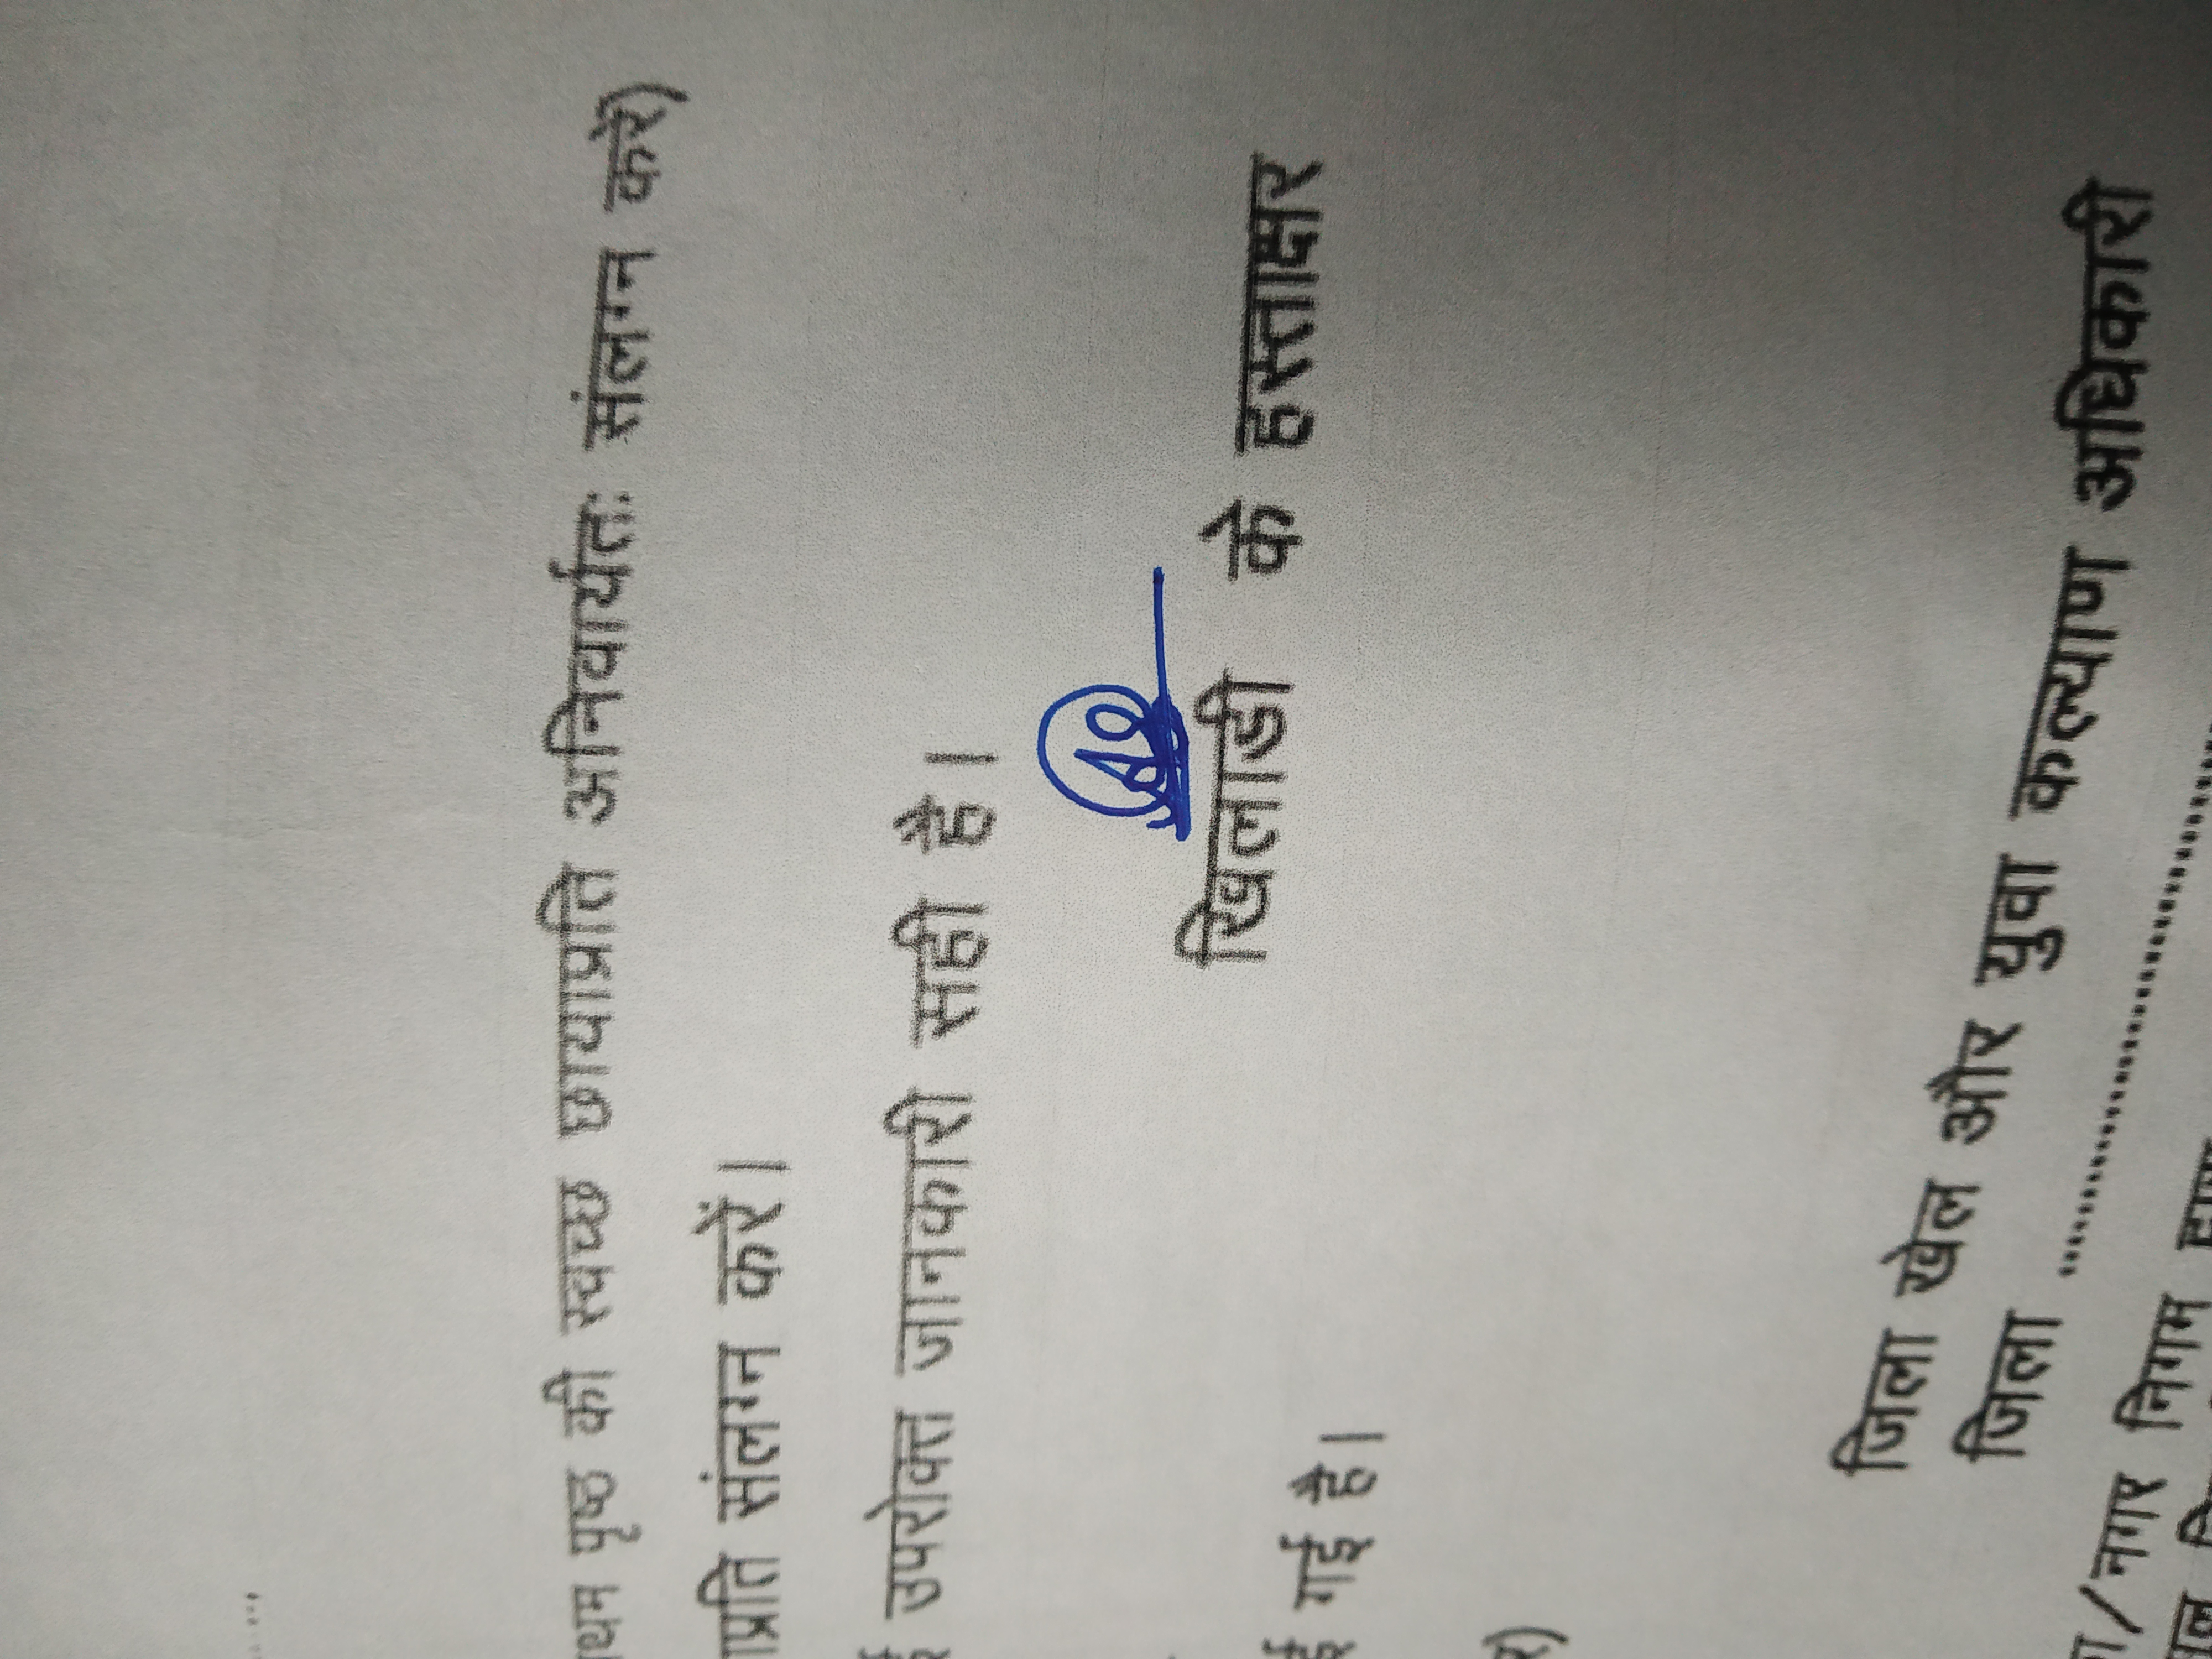 पृष्ठ की स्वच्छ छायाप्रति अनिवार्यतः संलग्न करें)
संलग्न करें।
उपरोक्त जानकारी सही है।
खिलाडी के हस्ताक्षर
गई है।
जिला खेल और युवा कल्याण अधिकारी
जिला ..............................
/नगर निगम